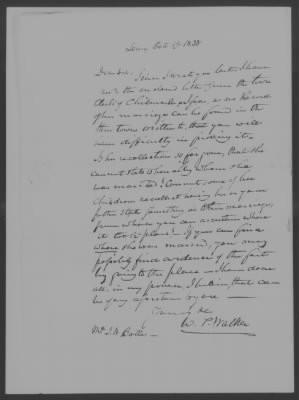 Lenox Oct 9th 1838
Dear Sir. Since I wrote you last I have
recd the enclosed letter from the town
Clerk of
of her marriage can be found in the
town written to, then you will
have difficulty in proving it.
Is her recollection so far gone, that she
cannot state when or by whom she
was married? Cannot some of her
children recollect hearing her or your
father state something as to her marriage,
from whom you can ascertain where
it took place? If you can find
where she was married, you may
possibly find evidence of the fact
by going to the place — I have done
all in my power, I believe that can
be of any
Yours &c
W. P. Walker
Mr J. W.